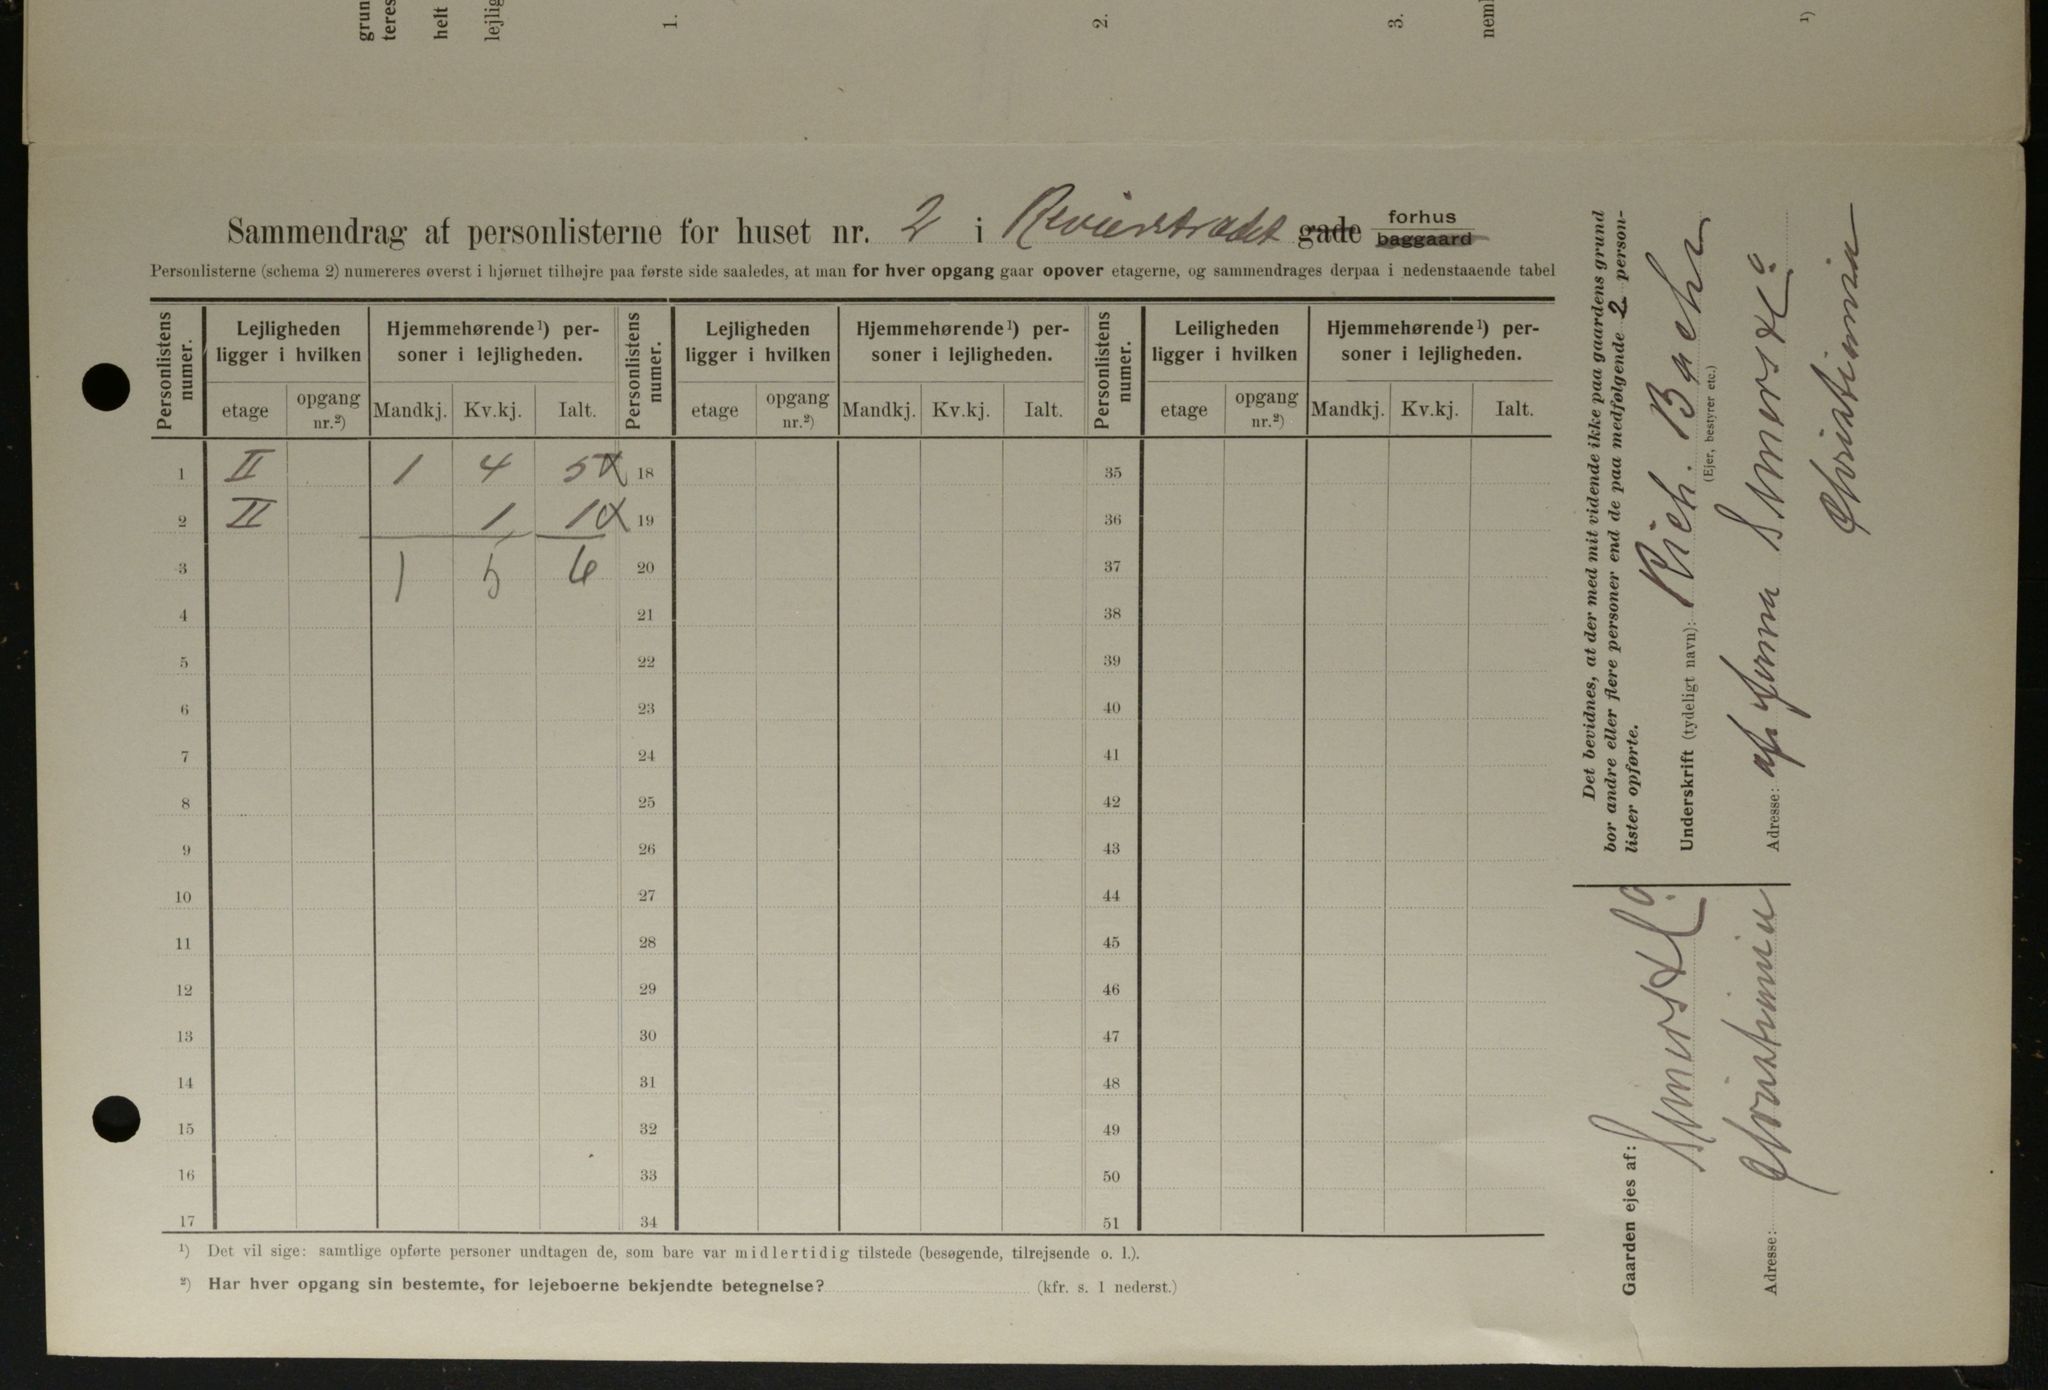 grun
teres
helt
lejlig
1.
2.
3.
neml
¹)
Sammendrag af personlisterne for huset nr. 2 i Revierstrædet gade forhus
baggaard
Personlisterne (schema 2) numereres øverst i hjørnet tilhøjre paa første side saaledes, at man for hver opgang gaar opover etagerne, og sammendrages derpaa i nedenstaaende tabel
Personlistens numer. Lejligheden ligger i hvilken Hjemmehørende¹) personer i lejligheden. Personlistens numer. Lejligheden ligger i hvilken Hjemmehørende¹) personer i lejligheden. Personlistens numer. Leiligheden ligger i hvilken Hjemmehørende¹) personer i lejligheden.
etage opgang nr.²) Mandkj. Kv.kj. Ialt. etage opgang nr.²) Mandkj. Kv.kj. Ialt. etage opgang nr.²) Mandkj. Kv.kj. Ialt.
1 II 1 4 5 18 35
2 II 1 1 19 36
3 1 5 6 20 37
4 21 38
5 22 39
6 23 40
7 24 41
8 25 42
9 26 43
10 27 44
11 28 45
12 29 46
13 30 47
14 31 48
15 32 49
16 33 50
17 34 51
¹) Det vil sige: samtlige opførte personer undtagen de, som bare var midlertidig tilstede (besøgende, tilrejsende o. l.).
²) Har hver opgang sin bestemte, for lejeboerne bekjendte betegnelse? (kfr. s. 1 nederst.)
Det bevidnes, at der med mit vidende ikke paa gaardens grund
bor andre eller flere personer end de paa medfølgende 2 person-
lister opførte.
Underskrift (tydeligt navn): Rich. Bache
(Ejer, bestyrer etc.)
Adresse: af firma
Christiania
Gaarden ejes af:
Adresse: Christiania